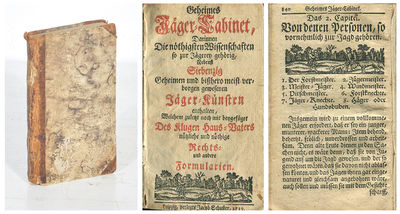 Geheimes
Jäger-Cabinet,
Darinnen
Die nöthigsten Wissenschaften
so zur Jägerey gehörig,
Nebenst
Siebenzig
Geheimen und bißhero meist-ver-
borgen gewesenen
Jäger-Künsten
enthalten,
Welchem zuletzt noch mit beygefüget
Des Klugen Haus-Vaters
nützliche und nöthige
Rechts-
und andere
Formularien.
Leipzig, verlegts Jacob Schuster,
Geheimes Jäger-Cabinet.
Das 2. Capitel.
Von denen Personen, so
vornehmlich zur Jagd gehören.
1. Der Forstmeister. 2. Jägermeister.
3. Wildmeister. 4.
5. Pirschmeister. 6. Forstknechte.
7. Jäger-Knechte. 8. Jäger oder
Hundsbuben.
Insgemein wird zu einem vollkomme-
nen Jäger erfordert, daß er sey ein junger,
munterer, wackerer Mann, dem
behend, frölich, unverdrossen und arbeit-
sam. Denn alte Leute dienen zu den Sa-
chen nicht, es wäre denn, daß sie von Ju-
gend auf um die Jagd gewesen, und der so
gewohnet wären, daß sie davon nicht ablas-
sen könten, und das Jagen ihnen gar einge-
naturet und gleichsam angebohren wäre,
auch sollen und müssen sie mit dem Gesichte